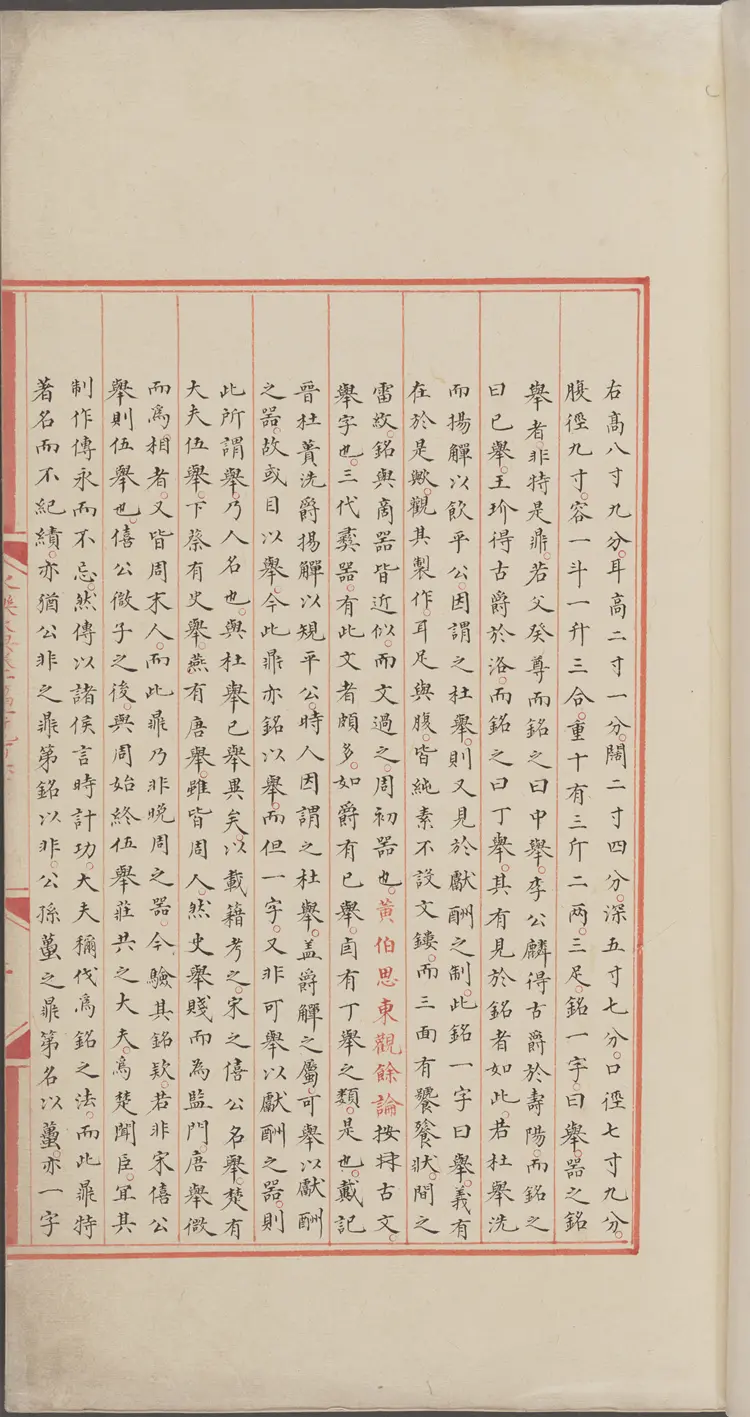 右高八寸九分。耳高二寸一分。闊二寸四分。深五寸七分。口徑七寸九分。
腹徑九寸。容一斗一升三合。重十有三斤二两。三足。銘一字。曰舉。器之銘
舉者。非特是鼎。若父癸尊而銘之曰中舉。李公麟得古爵於壽陽。而銘之
曰已舉。王玠得古爵於洛。而銘之曰丁舉。其有見於銘者如此。若杜舉洗
而揚觶以飲平公。因謂之杜舉。則又見於獻酬之制。此銘一字曰舉。義有
在於是歟。觀其製作。耳足與腹。皆純素不設文鏤。而三面有饕餮狀。間之
雷紋。銘與商器皆近似。而文過之。周初器也。黃伯思東觀餘論按𢪙古文。
舉字也。三代彝器。有此文者頗多。如爵有已舉。卣有丁舉之類。是也。戴記
晉杜蕢洗爵揚觶以規平公。時人因謂之杜舉。盖爵觶之屬。可舉以獻酬
之器。故或目以舉。今此鼎亦銘以舉。而但一字。又非可舉以獻酬之器。則
此所謂舉。乃人名也。與杜舉已舉異矣。以載籍考之。宋之僖公名舉。楚有
大夫伍舉。下蔡有史舉。燕有唐舉。雖皆周人。然史舉賤而為監門。唐舉微
而爲相者。又皆周末人。而此鼎乃非晚周之器。今驗其銘欵。若非宋僖公
舉則伍舉也。僖公微子之後。與周始終伍舉莊共之大夫。爲楚聞臣。宜其
制作傳永而不忌。然傳以諸侯言時計功。大夫稱伐爲銘之法。而此鼎特
著名而不紀績。亦猶公非之鼎第銘以非。公孫蠆之鼎第名以蠆。亦一字